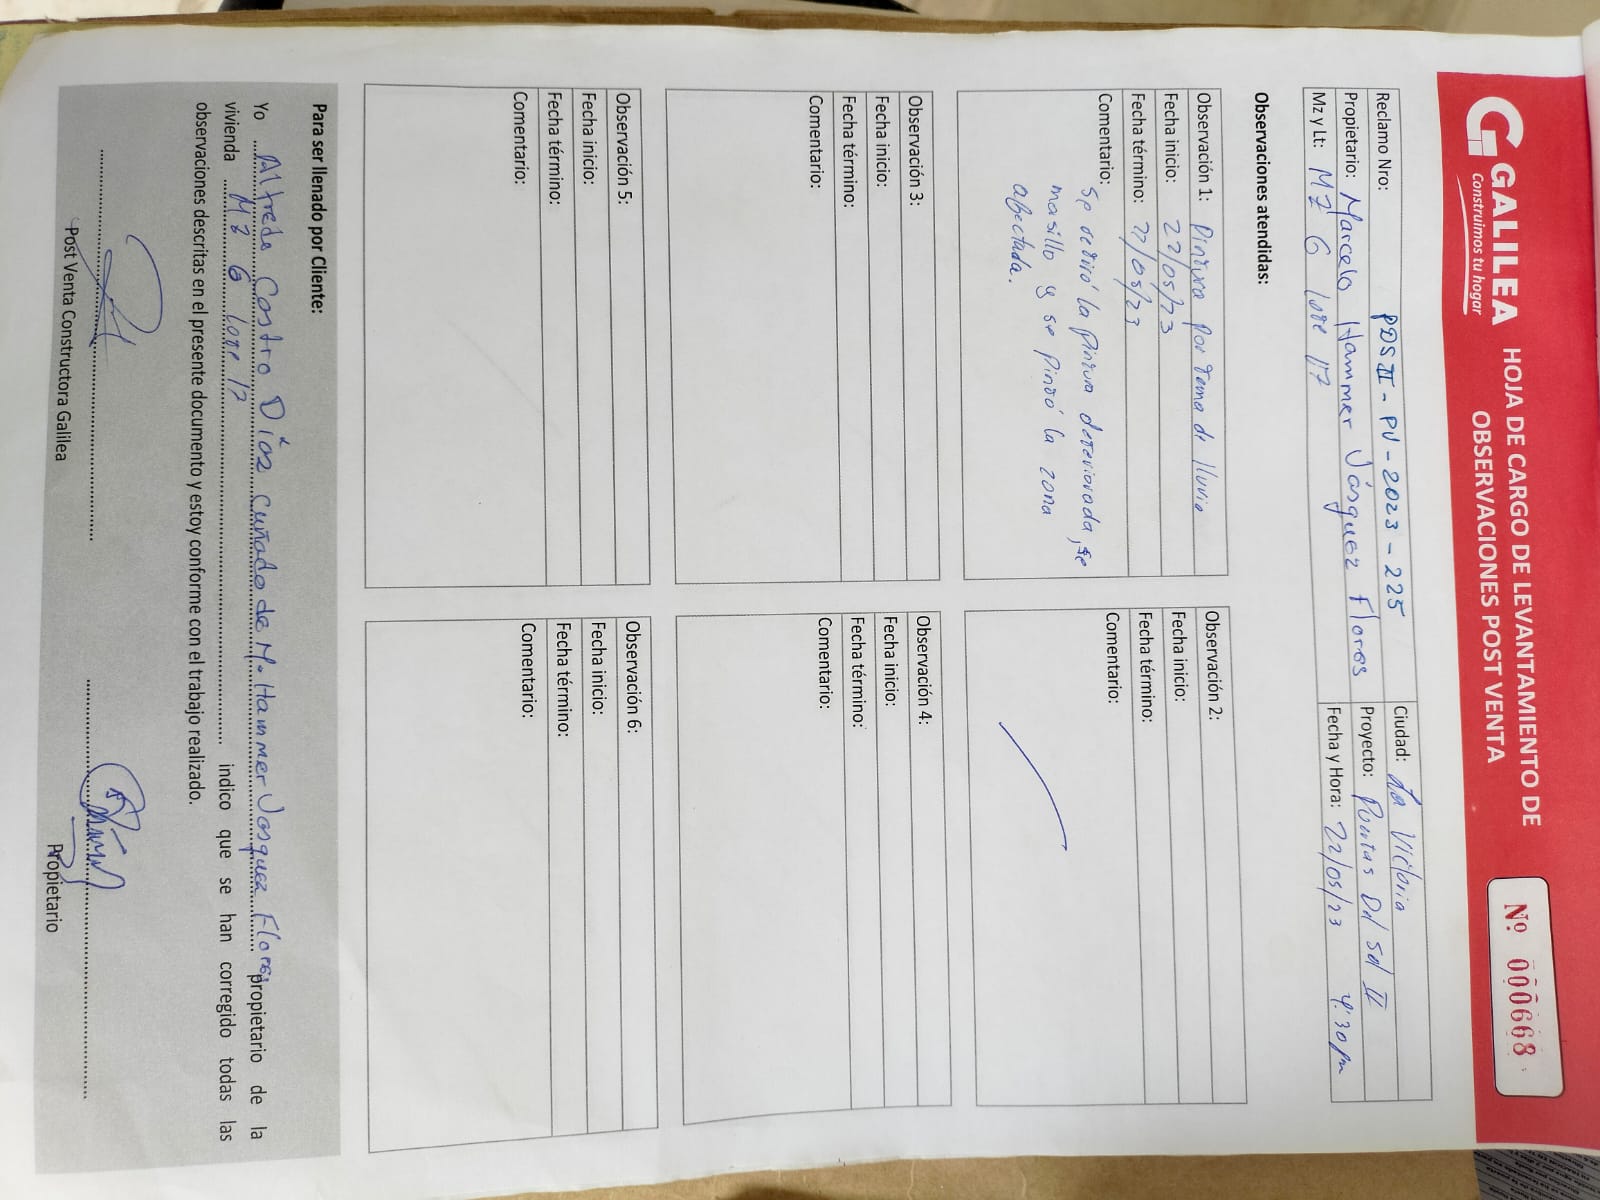 GALILEA
Construimos tu hogar
HOJA DE CARGO DE LEVANTAMIENTO DE
OBSERVACIONES POST VENTA
Nº 000668
Reclamo Nro: PDS II - PV - 2023 - 225
Ciudad: La Victoria
Propietario: Marcelo Hammer Vásquez Flores
Proyecto: Puertas Del Sol II
Mz y Lt: MZ G lote 17
Fecha y Hora: 22/05/23 4:30 pm
Observaciones atendidas:
Observación 1: Pintura por tema de lluvia
Fecha inicio: 22/05/23
Fecha término: 22/05/23
Comentario: Se retiró la pintura deteriorada, se
masillo y se pintó la zona
afectada.
Observación 2:
Fecha inicio:
Fecha término:
Comentario:
Observación 3:
Fecha inicio:
Fecha término:
Comentario:
Observación 4:
Fecha inicio:
Fecha término:
Comentario:
Observación 5:
Fecha inicio:
Fecha término:
Comentario:
Observación 6:
Fecha inicio:
Fecha término:
Comentario:
Para ser llenado por Cliente:
Yo Alfredo Castro Días cuñado de M. Hammer Vasquez Flores propietario de la
vivienda Mz G lote 17 indico que se han corregido todas las
observaciones descritas en el presente documento y estoy conforme con el trabajo realizado.
Post Venta Constructora Galilea
Propietario